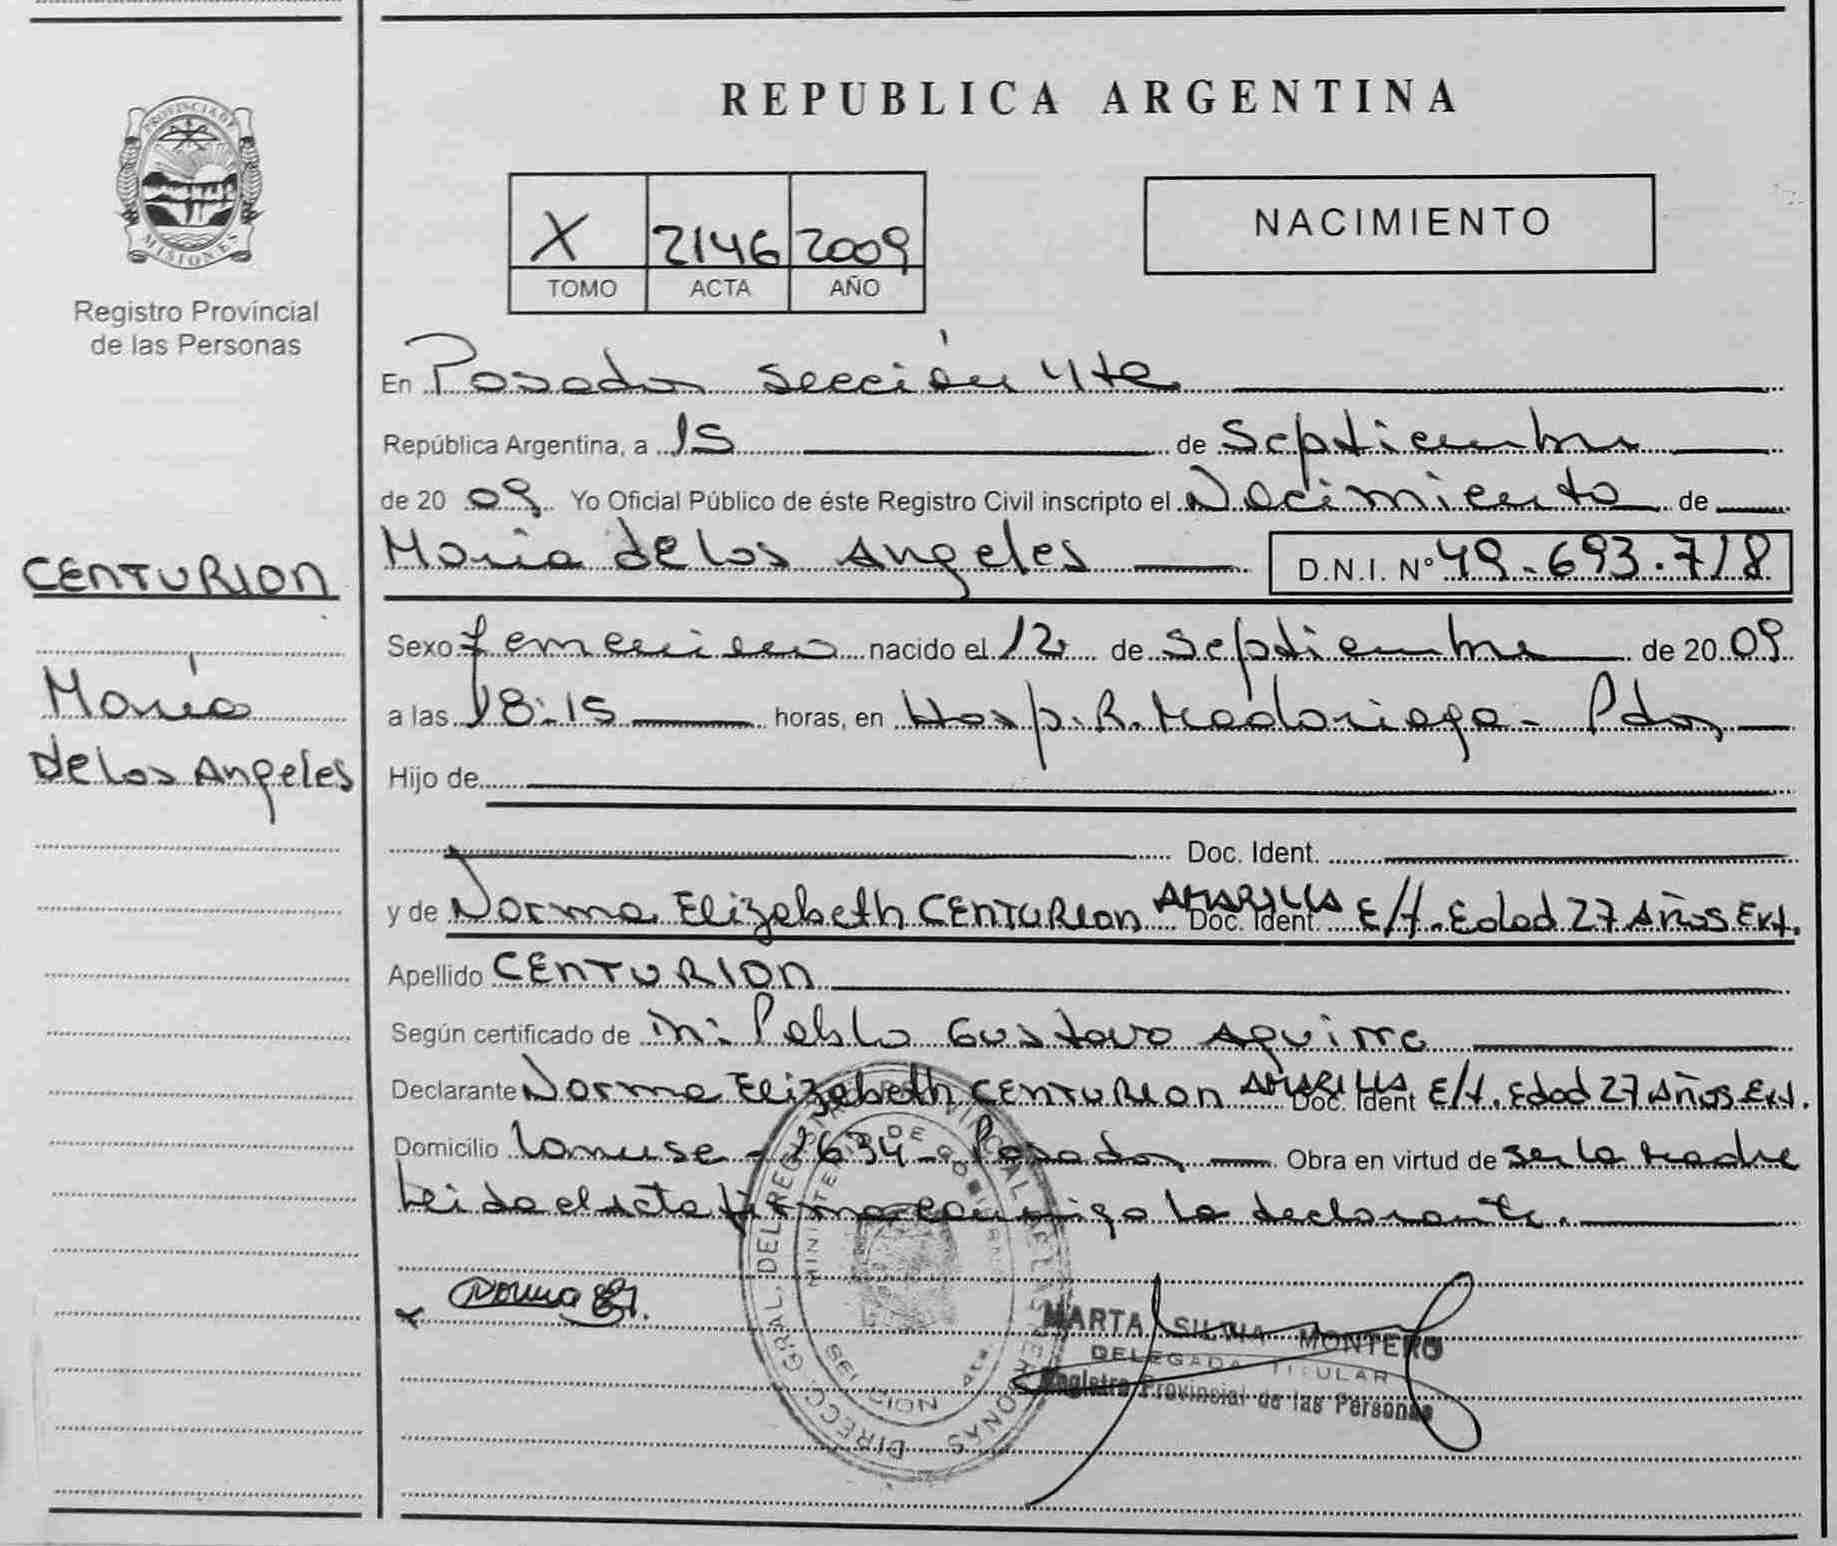 PROVINCIA DE
MISIONES
Registro Provincial
de las Personas
CENTURION
María
de los Angeles
REPUBLICA ARGENTINA
X 2146 2009
TOMO ACTA AÑO
NACIMIENTO
En Posadas Sección 4ta
República Argentina, a 15 de Septiembre
de 2009 Yo Oficial Público de éste Registro Civil inscripto el Nacimiento de
María de los Angeles D.N.I. Nº 49.693.718
Sexo femenino nacido el 12 de Septiembre de 2009
a las 18:15 horas, en Hosp. R. Madariaga - Pdas
Hijo de
Doc. Ident.
y de Norma Elizabeth CENTURION AMARILLA Doc. Ident. E/t. Edad 27 Años Ext.
Apellido CENTURION
Según certificado de Pablo Gustavo Aguirre
Declarante Norma Elizabeth CENTURION AMARILLA Doc. Ident E/t. Edad 27 Años Ext.
Domicilio Lanusse - 2634 - Posadas Obra en virtud de ser la madre
Leida el acta firma conmigo la declarante.
Norma
DIRECC. GRAL. DEL REGISTRO PROVINCIAL DE LAS PERSONAS
MINISTERIO DE GOBIERNO
SECCION 4ta
MARTA SILVIA MONTERO
DELEGADA TITULAR
Registro Provincial de las Personas